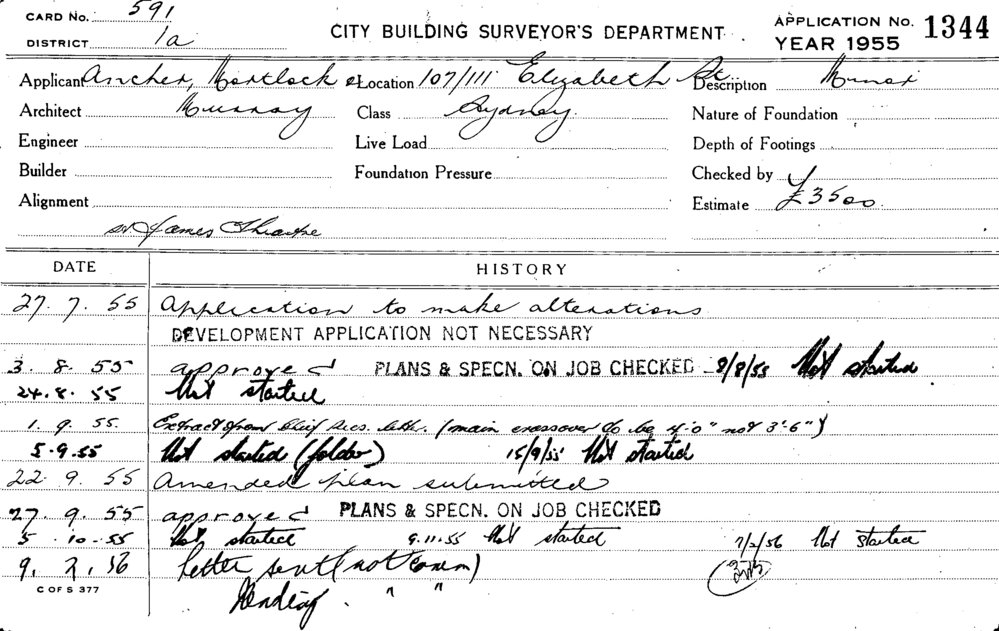 CARD No. 591
DISTRICT 1a
CITY BUILDING SURVEYOR'S DEPARTMENT
APPLICATION No. 1344
YEAR 1955
Applicant Ancher, Mortlock & Location 107/111 Elizabeth St Description Minor
Architect Murray Class Sydney. Nature of Foundation
Engineer Live Load Depth of Footings
Builder Foundation Pressure Checked by
Alignment Estimate £3500
James
DATE HISTORY
27. 7. 55 Application to make alterations
DEVELOPMENT APPLICATION NOT NECESSARY
3. 8. 55 approved PLANS & SPECN. ON JOB CHECKED 8/8/55 Not started
24. 8. 55 Not started
1. 9. 55. Extract from letter. (main crossover to be 4'.0" not 3'.6")
5. 9. 55 Not started (folder) 15/9/55 Not started
22. 9. 55 Amended plan submitted
27. 9. 55 approved PLANS & SPECN. ON JOB CHECKED
5. 10. 55 Not started 9.11.55 Not started 7/2/56 Not started
9. 2. 56 Letter sent (not comm)
C OF S 377
" "